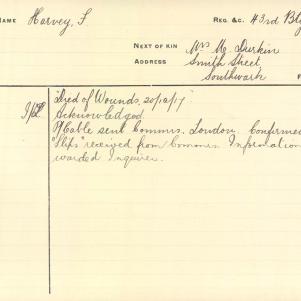 NAME Harvey, F REG &C. 43rd Bty
NEXT OF KIN Mrs M. Durkin
ADDRESS Smith Street
Southwark
"Died of Wounds, 20/12/17"
Acknowledged
Cable sent Commrs. London. Confirmed
"Slips" received from Commrs Information
warded Inquirer.